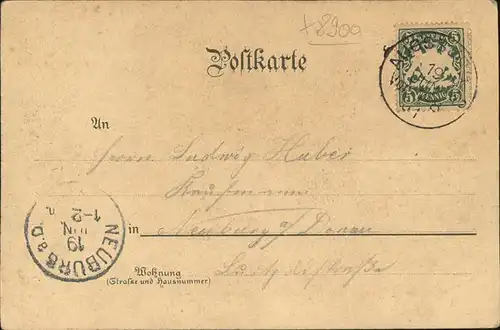 x 8900
Postkarte
5 5
PFENNIG
An
Herrn Ludwig Huber
Kaufmann
in Neuburg a/Donau
Wohnung
(Straße und Hausnummer)
NEUBURG a.D.
19
JUN.
1-2